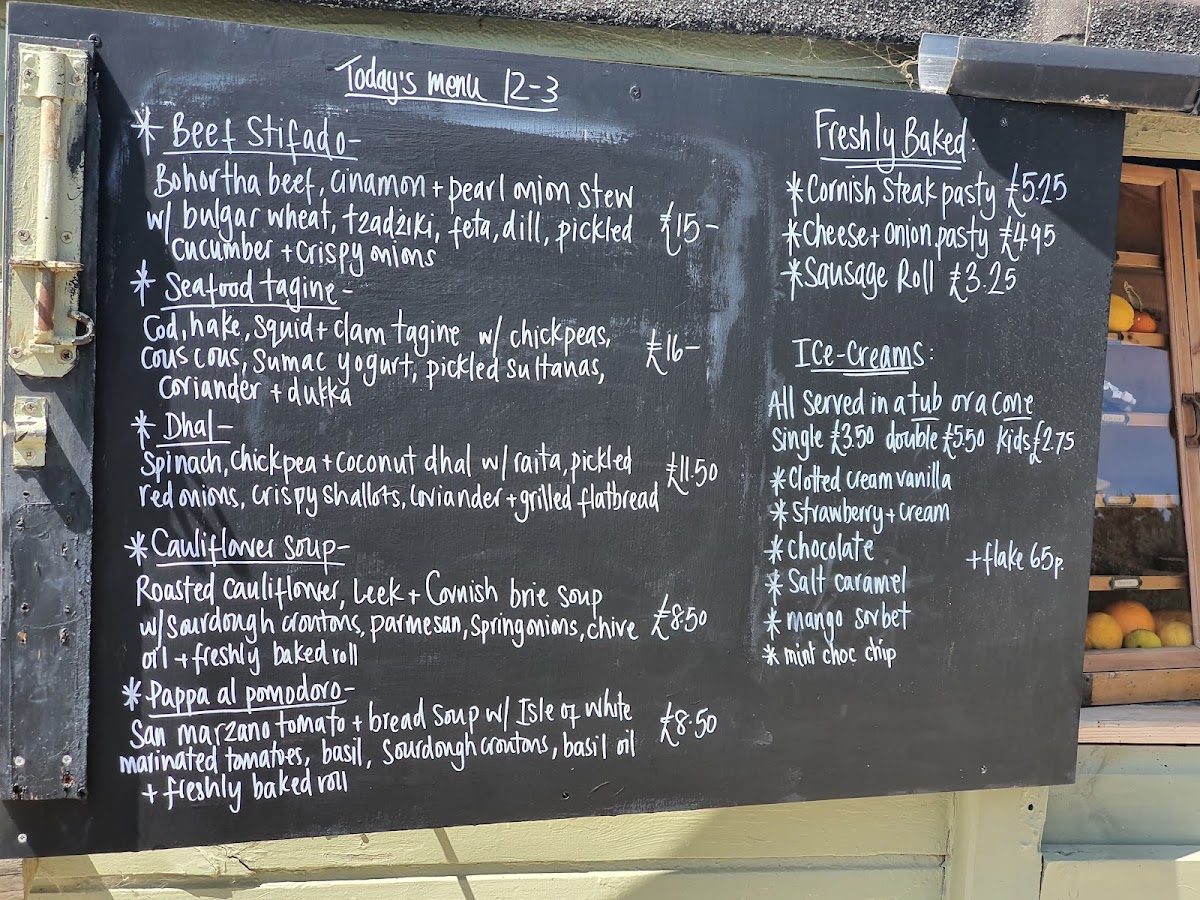 Today's menu 12-3
* Beef Stifado-
Bohortha beef, cinamon + pearl onion stew
w/ bulgar wheat, tzadziki, feta, dill, pickled £15-
cucumber + crispy onions
* Seafood tagine-
Cod, hake, squid + clam tagine w/ chickpeas,
cous cous, sumac yogurt, pickled sultanas, £16-
coriander + dukka
* Dhal-
Spinach, chickpea + coconut dhal w/ raita, pickled £11.50
red onions, crispy shallots, coriander + grilled flatbread
* Cauliflower soup-
Roasted cauliflower, leek + Cornish brie soup
w/ sourdough croutons, parmesan, spring onions, chive £8.50
oil + freshly baked roll
* Pappa al pomodoro-
San marzano tomato + bread soup w/ Isle of White
marinated tomatoes, basil, sourdough croutons, basil oil £8.50
+ freshly baked roll
Freshly Baked:
* Cornish steak pasty £5.25
* Cheese + onion pasty £4.95
* Sausage Roll £3.25
Ice-Creams:
All served in a tub or a cone
single £3.50 double £5.50 kids £2.75
* Clotted cream vanilla
* Strawberry + cream
* chocolate
+ flake 65p.
* Salt caramel
* mango sorbet
* mint choc chip